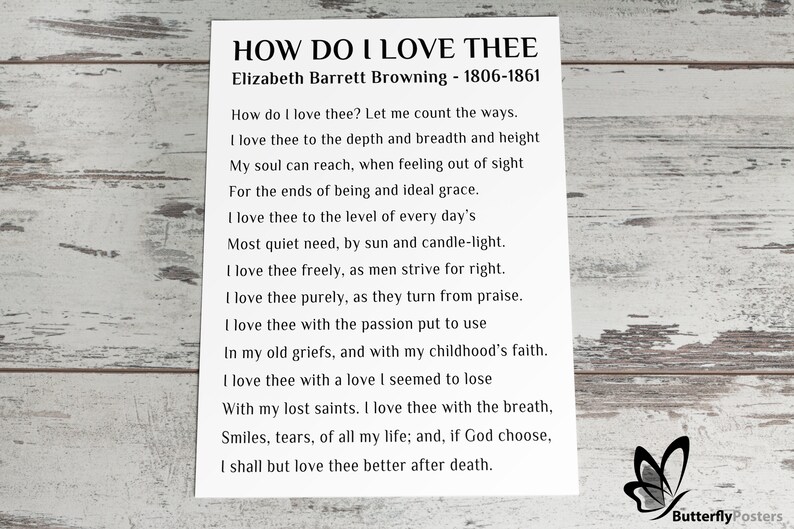 HOW DO I LOVE THEE
Elizabeth Barrett Browning - 1806-1861
How do I love thee? Let me count the ways.
I love thee to the depth and breadth and height
My soul can reach, when feeling out of sight
For the ends of being and ideal grace.
I love thee to the level of every day’s
Most quiet need, by sun and candle-light.
I love thee freely, as men strive for right.
I love thee purely, as they turn from praise.
I love thee with the passion put to use
In my old griefs, and with my childhood’s faith.
I love thee with a love I seemed to lose
With my lost saints. I love thee with the breath,
Smiles, tears, of all my life; and, if God choose,
I shall but love thee better after death.
ButterflyPosters